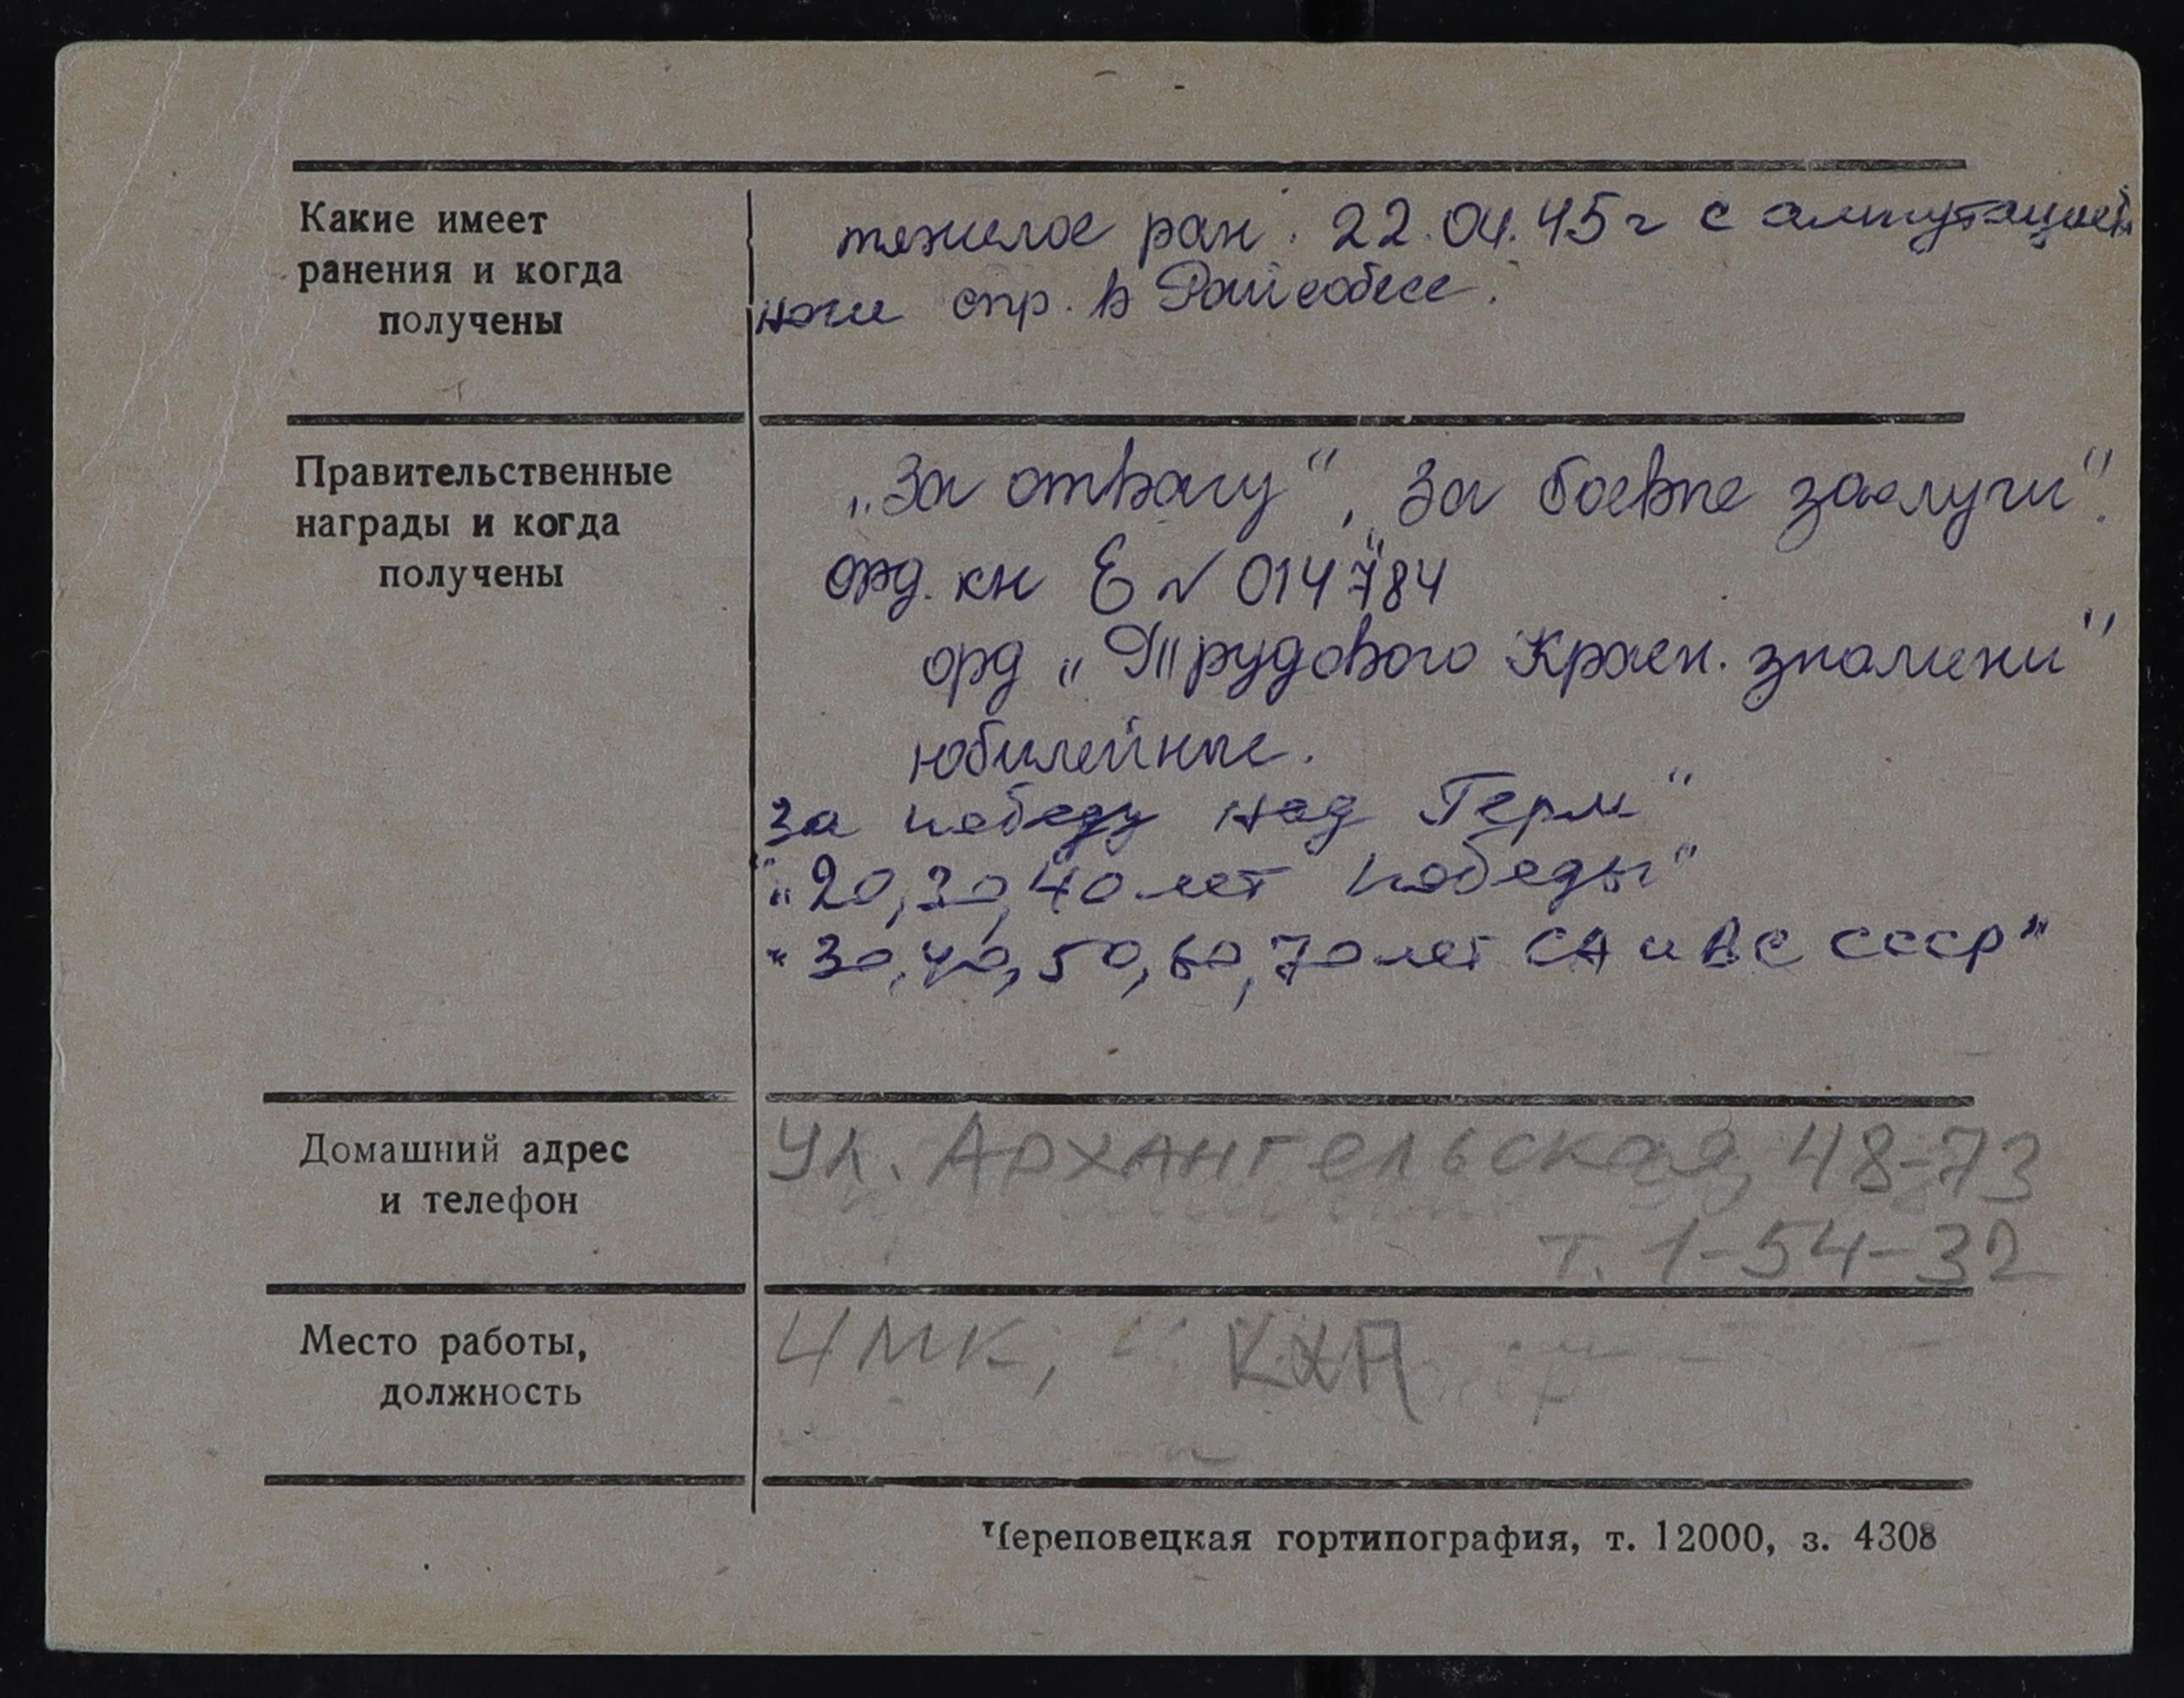 Какие имеет
ранения и когда
получены
тяжелое ран. 22.04.45 г с ампутацией
ноги спр. в Райсобесе.
Правительственные
награды и когда
получены
„За отвагу“, „За боевые заслуги“.
орд. кн Е № 014784
орд „Трудового Красн. знамени“
юбилейные.
За победу над Герм“
„20, 30, 40 лет победы“
„30, 40, 50, 60, 70 лет СА и ВС СССР“
Домашний адрес
и телефон
ул. Архангельская, 48-73
т. 1-54-32
Место работы,
должность
ЧМК, КХП
Череповецкая гортипография, т. 12000, з. 4308